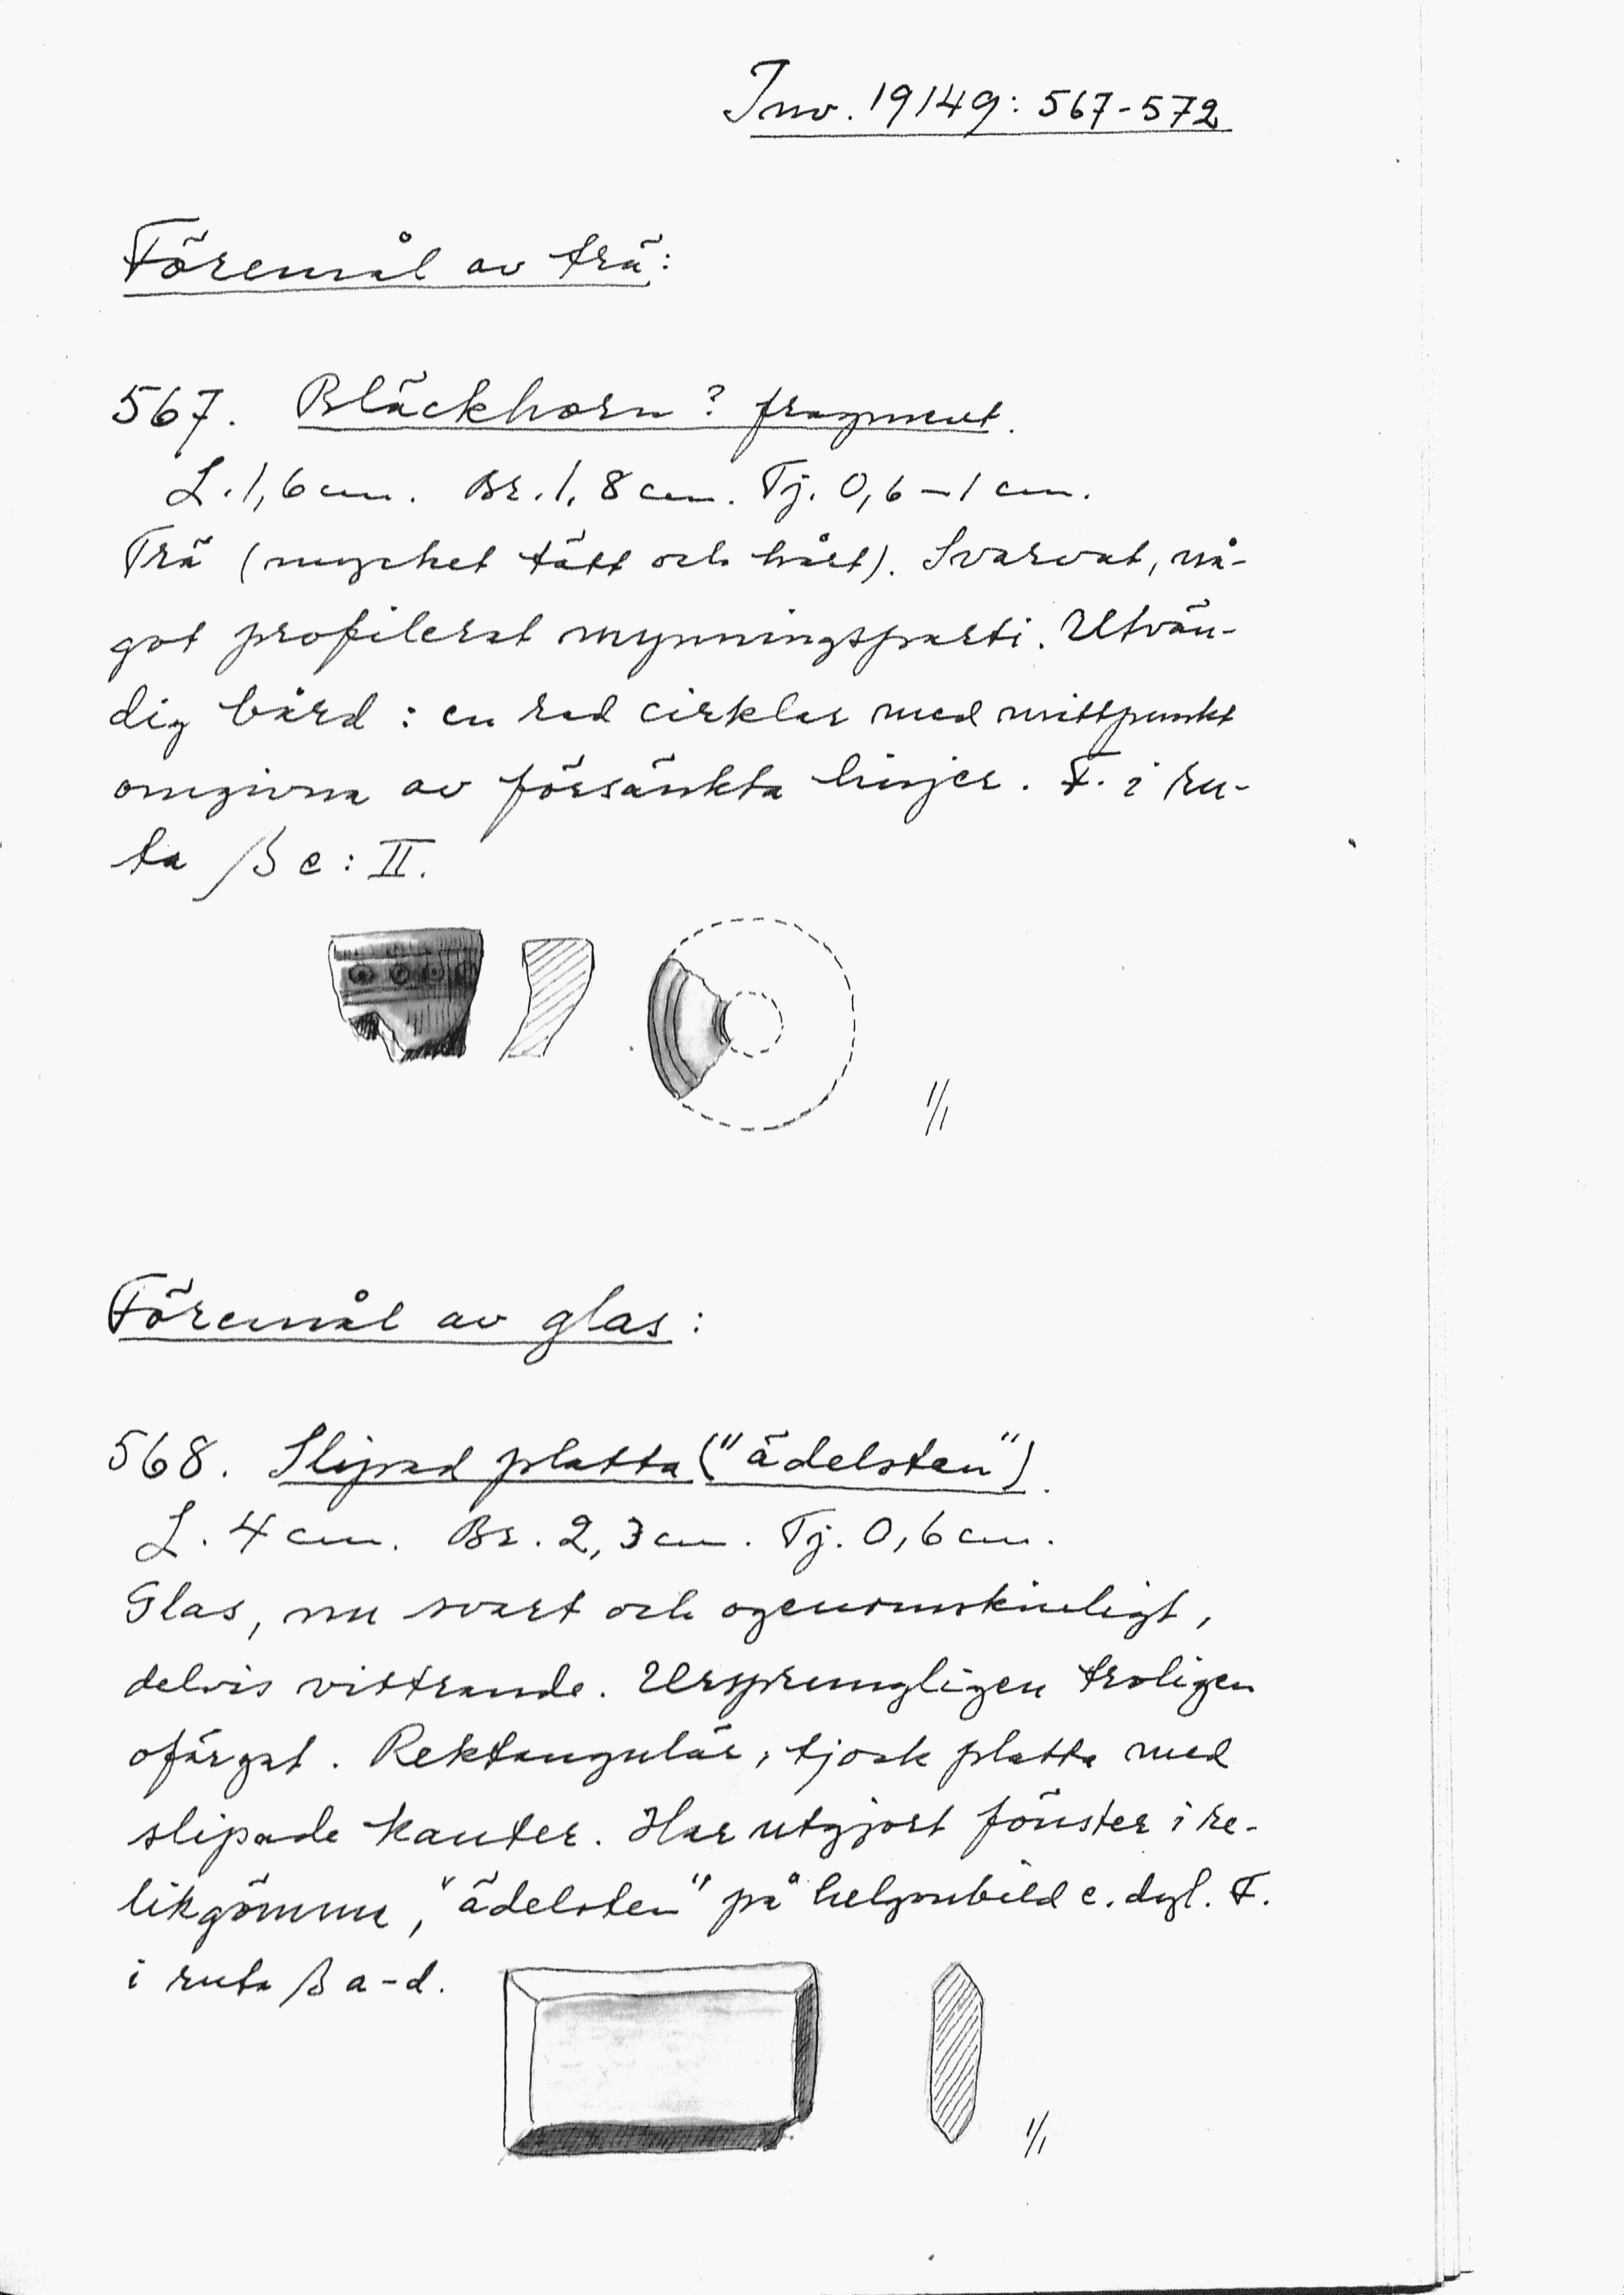 Inv. 19149: 567-572
Föremål av trä:
567. Bläckhorn? fragment.
L. 1,6 cm. Br. 1,8 cm. Tj. 0,6-1 cm.
Trä (mycket tätt och hårt). Svarvat, nå-
got profilerat mynningsparti. Utvän-
dig bård: en rad cirklar med mittpunkt
omgivna av försänkta linjer. F. i ru-
ta β c: II.
1/1
Föremål av glas:
568. Slipad platta ("ädelsten").
L. 4 cm. Br. 2,3 cm. Tj. 0,6 cm.
Glas, nu svart och ogenomskinligt,
delvis vittrande. Ursprungligen troligen
ofärgat. Rektangulär, tjock platta med
slipade kanter. Har utgjort fönster i re-
likgömme, "ädelsten" på helgonbild e. dyl. F.
i ruta β a-d.
1/1